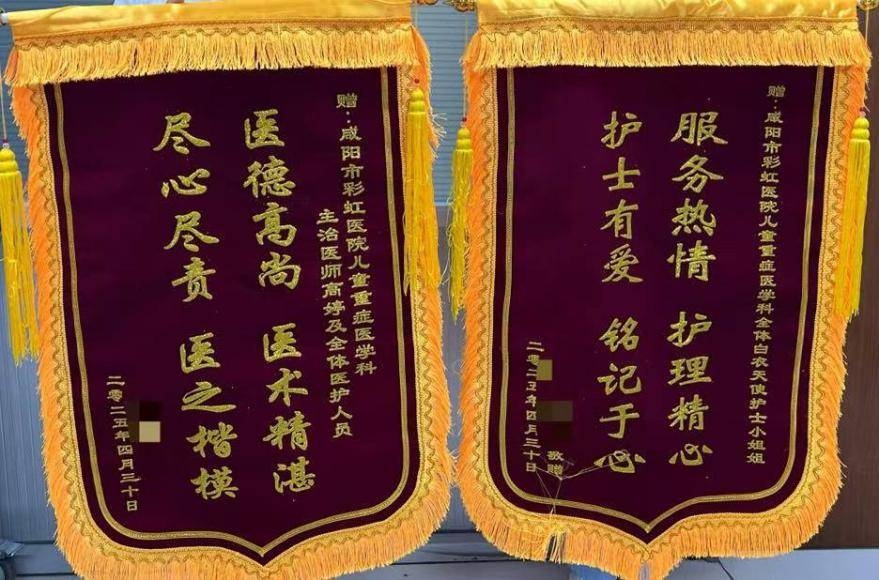 赠：咸阳市彩虹医院儿童重症医学科
主治医师高婷及全体医护人员
医德高尚 医术精湛
尽心尽责 医之楷模
二零二五年四月三十日
赠：咸阳市彩虹医院儿童重症医学科全体白衣天使护士小姐姐
服务热情 护理精心
护士有爱 铭记于心
敬赠
二零二五年四月三十日